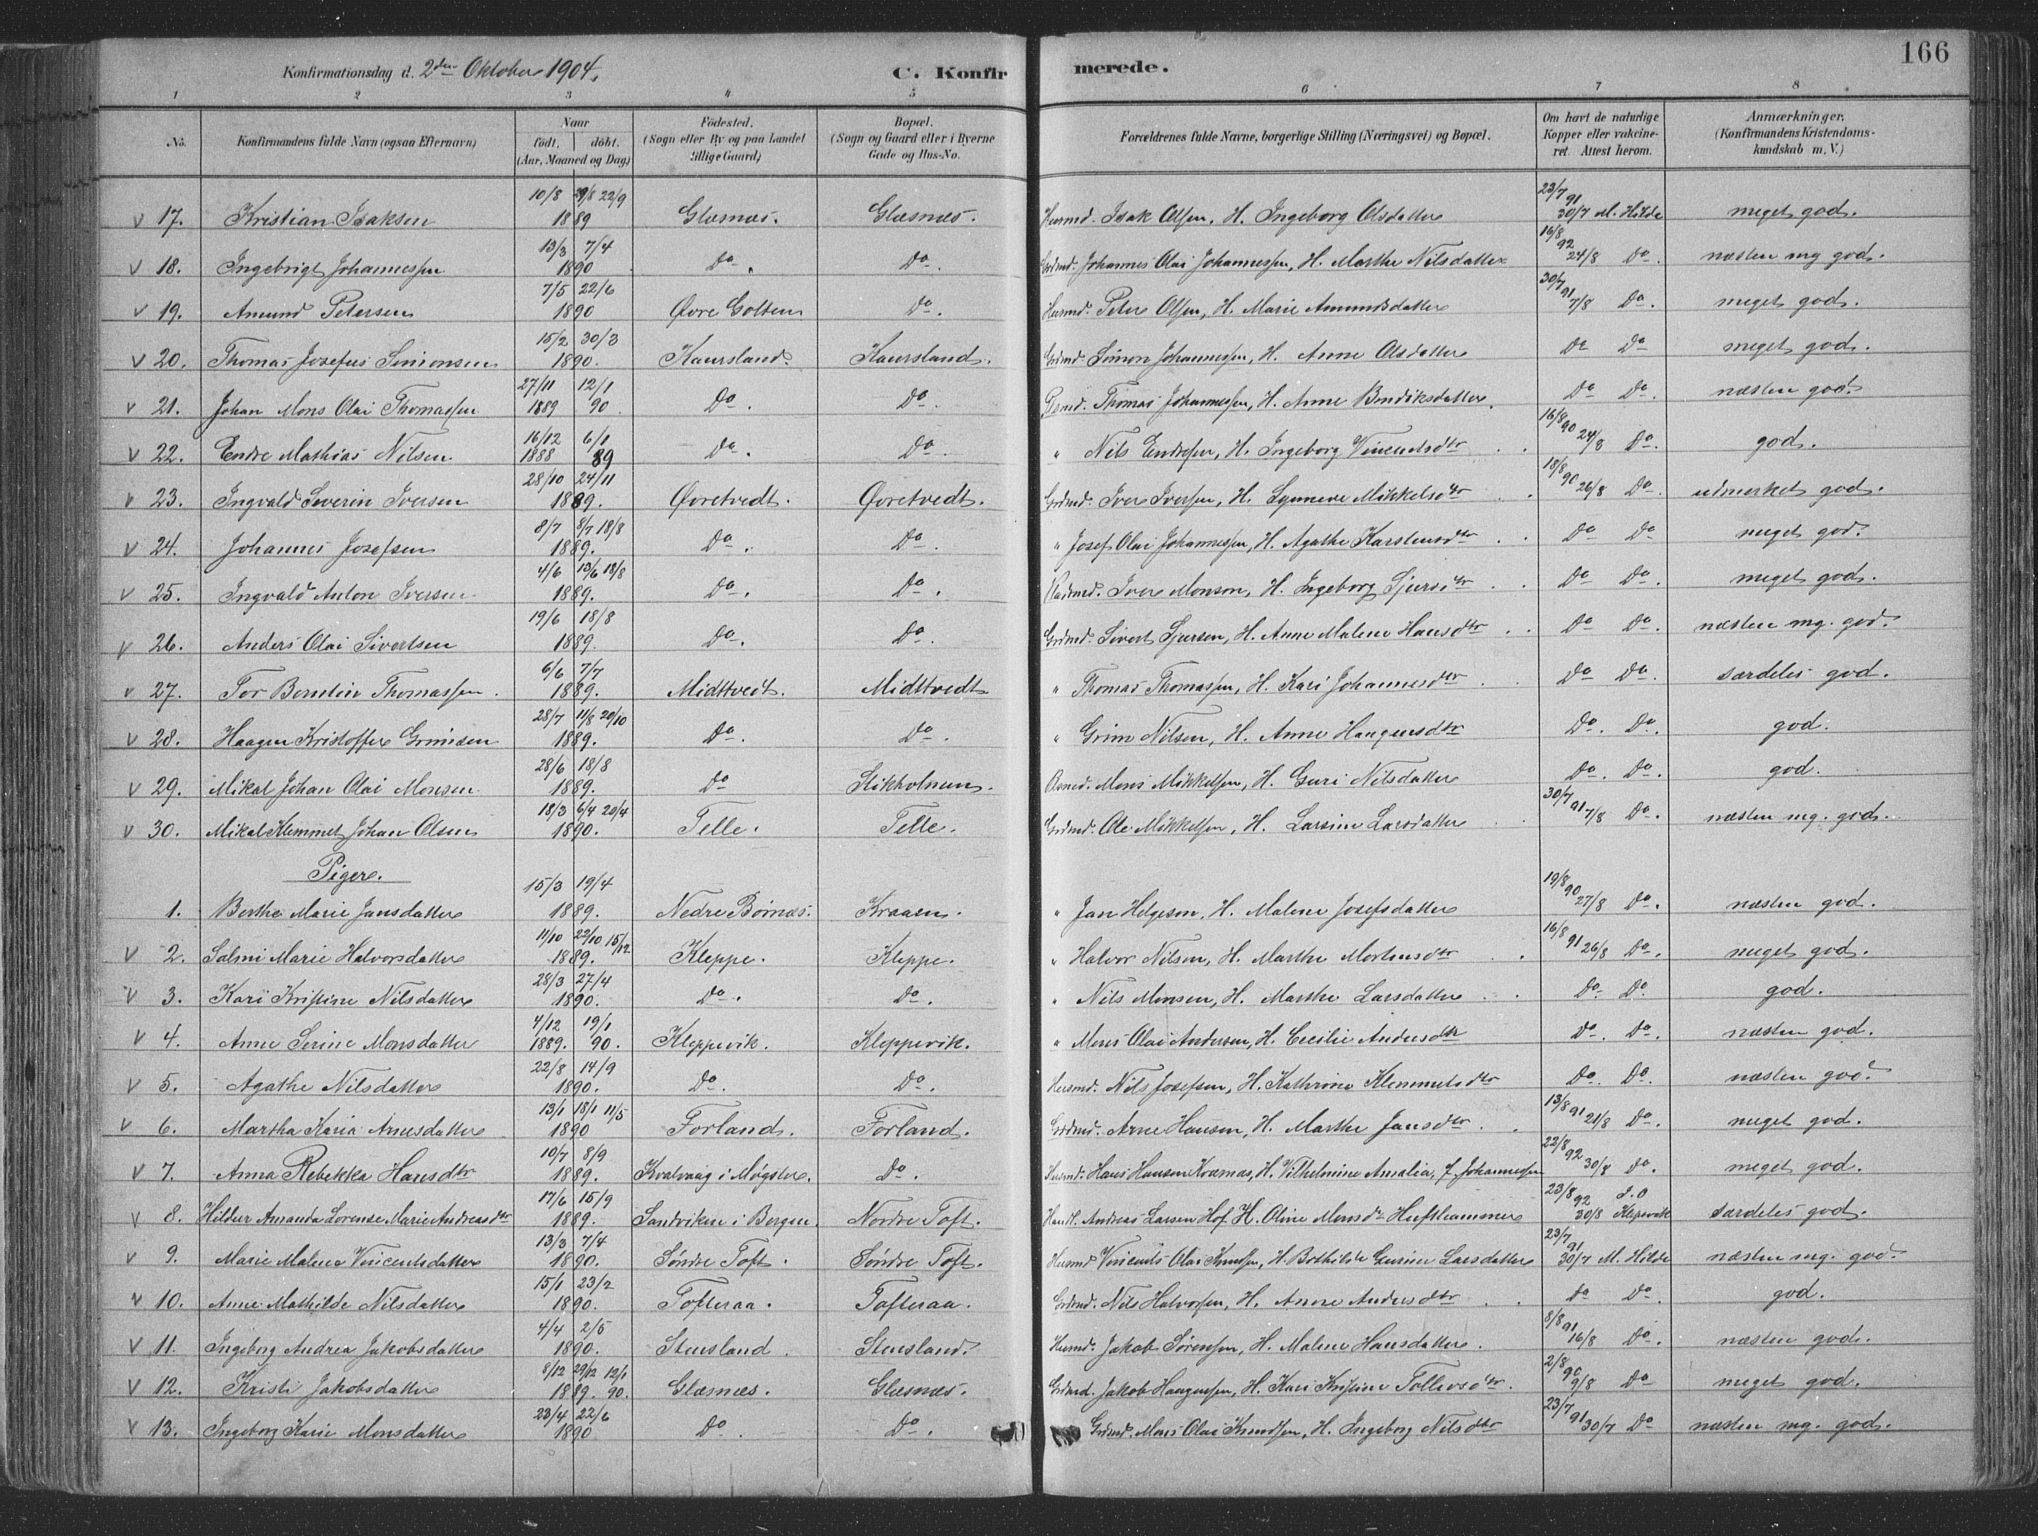 166
Konfirmationsdag d. 2den Oktober 1904.
C. Konfirmerede.
1 2 3 4 5 6 7 8
No. Konfirmandens fulde Navn (ogsaa Efternavn) Naar født. døbt. (Aar, Maaned og Dag) Fødested. (Sogn eller By og paa Landet tillige Gaard) Bopæl. (Sogn og Gaard eller i Byerne Gade og Hus-No. Forældrenes fulde Navne, borgerlige Stilling (Næringsvei) og Bopæl. Om havt de naturlige Kopper eller vakcineret. Attest herom. Anmærkninger. (Konfirmandens Kristendomskundskab m. V.)
v 17. Kristian Isaksen 10/8 29/8 22/9 1889 Glæsnæs. Glæsnæs. Husmd. Isak Olsen, H. Ingeborg Olsdatter 23/7 91 30/7 M. Hilde meget god.
v 18. Ingebrigt Johannessen 13/3 7/4 1890 Do. Do. Grdmd. Johannes Olai Johannessen, H. Marthe Nilsdatter 16/8 92 24/8 Do. næsten mg god.
v 19. Amund Petersen 7/5 22/6 1890 Øvre Golten Do. Husmd. Peter Olsen, H. Marie Amundsdatter 30/7 91 7/8 Do. meget god.
v 20. Thomas Josefus Simonsen 15/2 30/3 1890. Kaursland. Kaursland. Grdmd. Simon Johannessen, H. Anne Olsdatter Do Do meget god.
v 21. Johan Mons Olai Thomassen 27/11 12/1 1889 90 Do. Do. Thomas Johannessen, H. Anne Bendiksdatter. Do Do. næsten god.
v 22. Endre Mathias Nilsen 16/12 6/1 1888 89 Do. Do. " Nils Endresen, H. Ingeborg Vincentsdtr 16/8 90 24/8 Do. god.
v 23. Ingvald Severin Iversen 28/10 24/11 1889. Øvretvedt. Øvretvedt. Grdmd. Iver Iversen, H. Synneve Mikkelsdtr 18/8 90 26/8 Do. udmerket god.
v 24. Johannes Josefsen 8/7 8/7 18/8 1889. Do. Do. " Josef Olai Johannessen, H. Agathe Karstensdtr Do Do meget god.
v 25. Ingvald Anton Iversen 4/6 13/6 18/8 1889. Do. Do. Iver Monsen, H. Ingeborg Sjursdtr Do Do. meget god.
v 26. Anders Olai Sivertsen 19/6 18/8 1889. Do. Do. Grdmd. Sivert Sjursen, H. Anne Malene Hansdtr Do Do. næsten mg. god.
v 27. Tor Berntin Thomassen. 6/6 7/7 1889. Midttvedt. Midttvedt " Thomas Thomassen, H. Kari Johannesdtr Do Do. særdeles god.
v 28. Haagen Kristoffer Grimsen 28/7 11/8 20/10 1889. Do. Do. " Grim Nilsen, H. Anne Haagensdtr Do. Do. god.
v 29. Mikal Johan Olai Monsen 28/6 18/8 1889. Do Stikholmen. Mons Mikkelsen, H. Guri Nilsdatter Do. Do. god.
v 30. Mikal Klemmet Johan Olsen 18/3 6/4 20/4 1890. Telle. Telle. Grdmd. Ole Mikkelsen, H. Larsine Larsdatter 30/7 91 7/8 Do. næsten mg. god.
Piger.
1. Berthe Marie Jansdatter 15/3 19/4 1889. Nedre Børnæs. Kraaen. " Jan Helgesen, H. Malene Josefsdatter 19/8 90 27/8 Do. næsten god.
v 2. Salmi Marie Halvorsdatter 11/10 22/10 15/12 1889. Kleppe. Kleppe. " Halvor Nilsen, H. Marthe Mortensdtr 16/8 91 26/8 Do. meget god.
v 3. Kari Kristine Nilsdatter 28/3 27/4 1890. Do. Do. " Nils Monsen, H. Marthe Larsdatter Do. Do. god.
v 4. Anne Serine Monsdatter 4/12 19/1 1889. 90. Kleppevik. Kleppevik. " Mons Olai Andersen, H. Cecilie Andersdtr Do. Do. næsten god.
v 5. Agathe Nilsdatter 22/8 14/9 1890. Do. Do. Husmd. Nils Josefsen, H. Kathrine Klemmetsdtr Do. Do. næsten god.
v 6. Martha Karia Arnesdatter 13/1 18/1 11/5 1890 Forland. Forland. Grdmd. Arne Hansen, H. Marthe Jansdtr 13/8 91 21/8 Do. meget god.
v 7. Anna Rebekka Hansdtr 10/7 8/9 1889. Kvalvaag i Møgster. Do. Husmd. Hans Hansen Kosmas, H. Vilhelmine Amalia, f. Johannessen 22/8 92 30/8 Do. meget god.
v 8. Hilbur Amanda Lorense Marie Andreasdtr 17/6 15/9 1889. Sandviken i Bergen. Nordre Toft. Andreas Larsen Hof. H. Oline Monsdtr Hufthammer 23/8 92 30/8 Klepevik særdeles god.
v 9. Marie Malene Vincentsdatter 13/3 7/4 1890. Søndre Toft. Søndre Toft. Husmd Vincents Olai Knudsen, H. Bothilde Gurine Larsdatter 23/7 91 30/7 M. Hilde næsten mg. god.
v 10. Anne Mathilde Nilsdatter 15/1 23/2 1890. Tofteraa. Tofteraa. Grdmd. Nils Halvorsen, H. Anne Andersdtr Do Do. god.
v 11. Ingeborg Andrea Jakobsdatter 4/4 2/5 1890. Stensland. Stensland. Husmd. Jakob Sørensen, H. Malene Hansdatter. 8/8 91 16/8 Do. næsten god.
v 12. Kristi Jakobsdatter 8/12 29/12 12/1 1889. 90. Glæsnæs. Glæsnæs. Grdmd. Jakob Haagensen, H. Kari Kristine Tollevsdtr. 2/8 90 9/8 Do meget god.
v 13. Ingeborg Karie Monsdatter 23/4 22/6 1890 Do. Do. Grdmd. Mons Olai Knudsen, H. Ingeborg Nilsdtr 23/7 91 30/7 Do næsten mg. god.